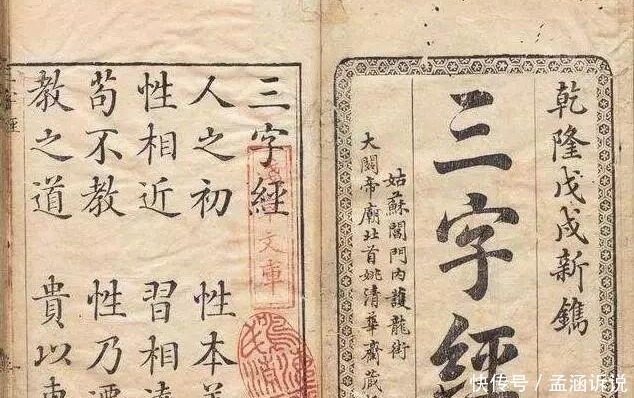 乾隆戊戌新鐫
三字經
姑蘇閶門內護龍街
大關帝廟北首姚清華齋藏
三字經
人之初 性本善
性相近 習相遠
苟不教 性乃遷
教之道 貴以專
文庫
快传号／孟涵诉说